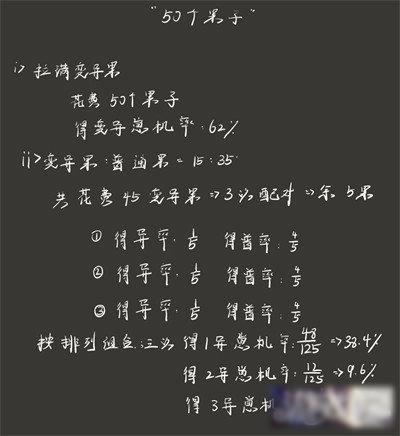 "50个果子"
i> 拉满变异果
花费50个果子
得变异总机率:62%
ii>变异果:普通果=15:35
共花费45变异果⇒3次配对⇒余5果
① 得异率:1/5 得普率:4/5
② 得异率:1/5 得普率:4/5
③ 得异率:1/5 得普率:4/5
按排列组合三次 得1异总机率:48/125⇒38.4%
得2异总机率:12/125⇒9.6%
得3异总机